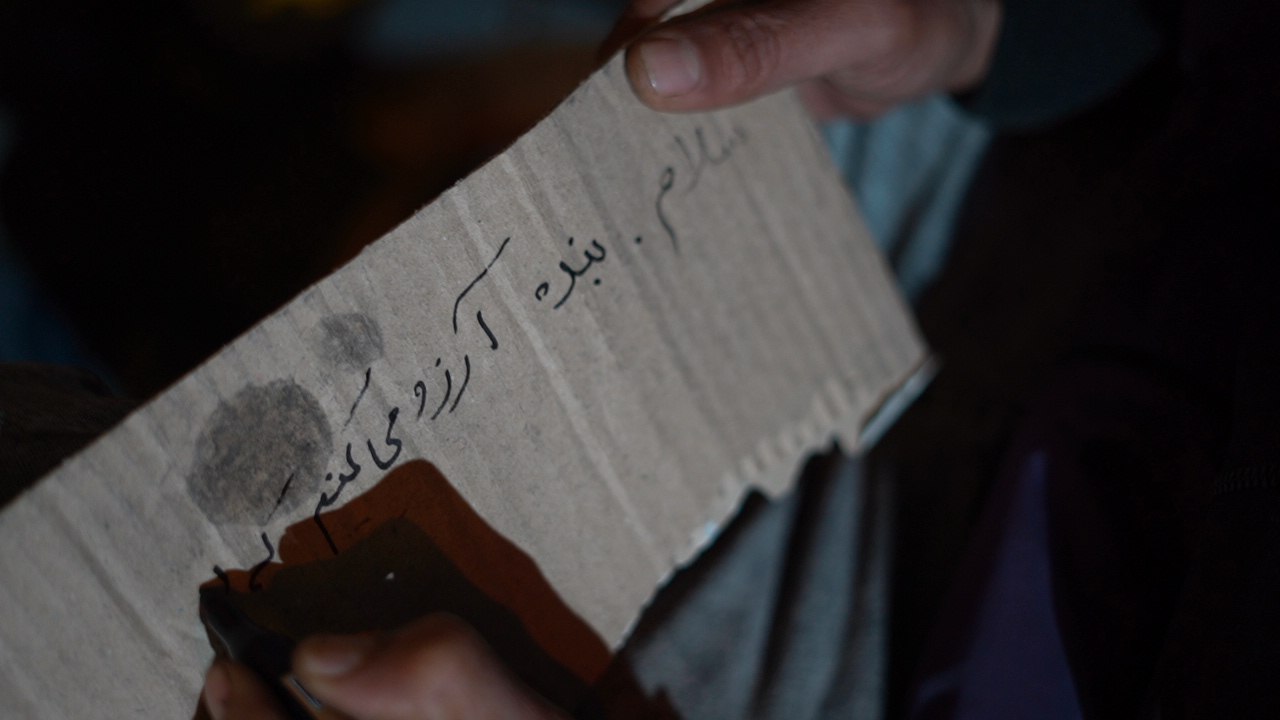 سلام. بنده آرزو می کنم که